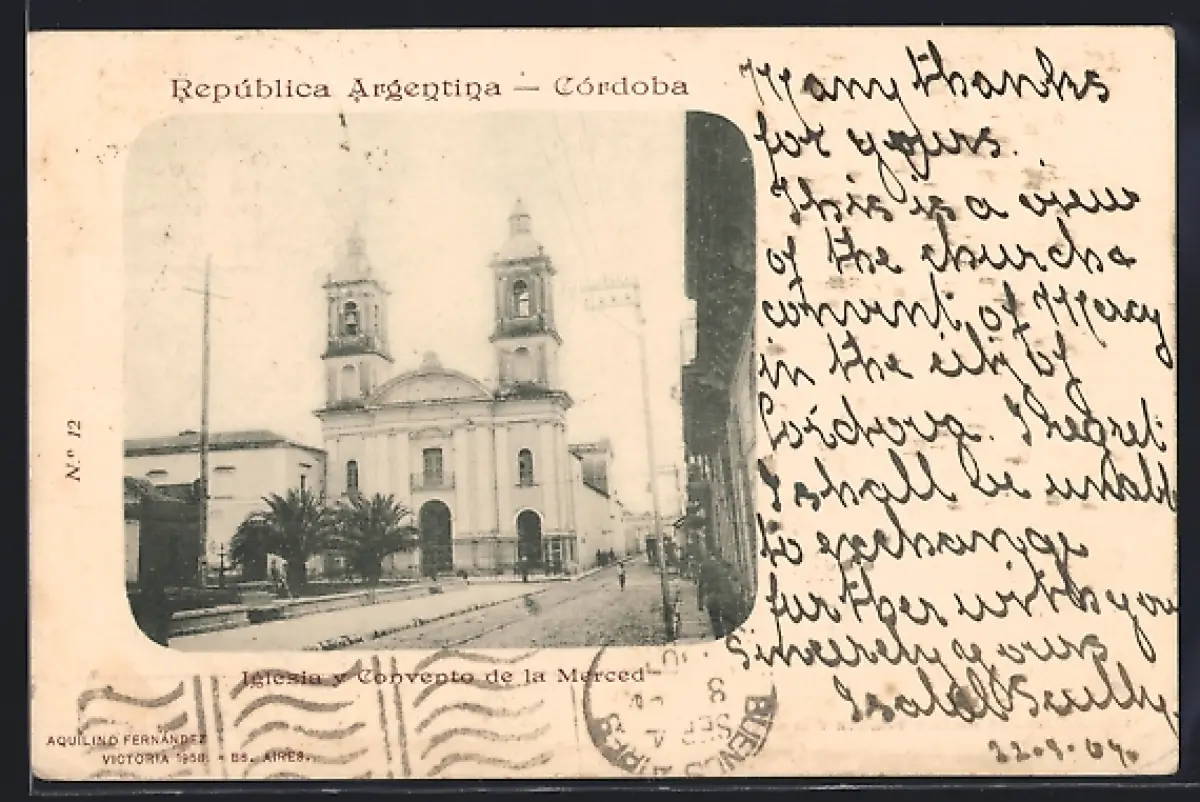 República Argentina — Córdoba
Many thanks
for yours.
This is a view
of the church &
convent of Mercy
in the city of
Cordova. I regret
I shall be unable
to exchange
further with you
Sincerely yours
Isabel Scully.
22.8.04.
N.º 12
Iglesia y Convento de la Merced
AQUILINO FERNÁNDEZ
VICTORIA 1958. - BS. AIRES.
8
SEP 4
BUENOS AIRES